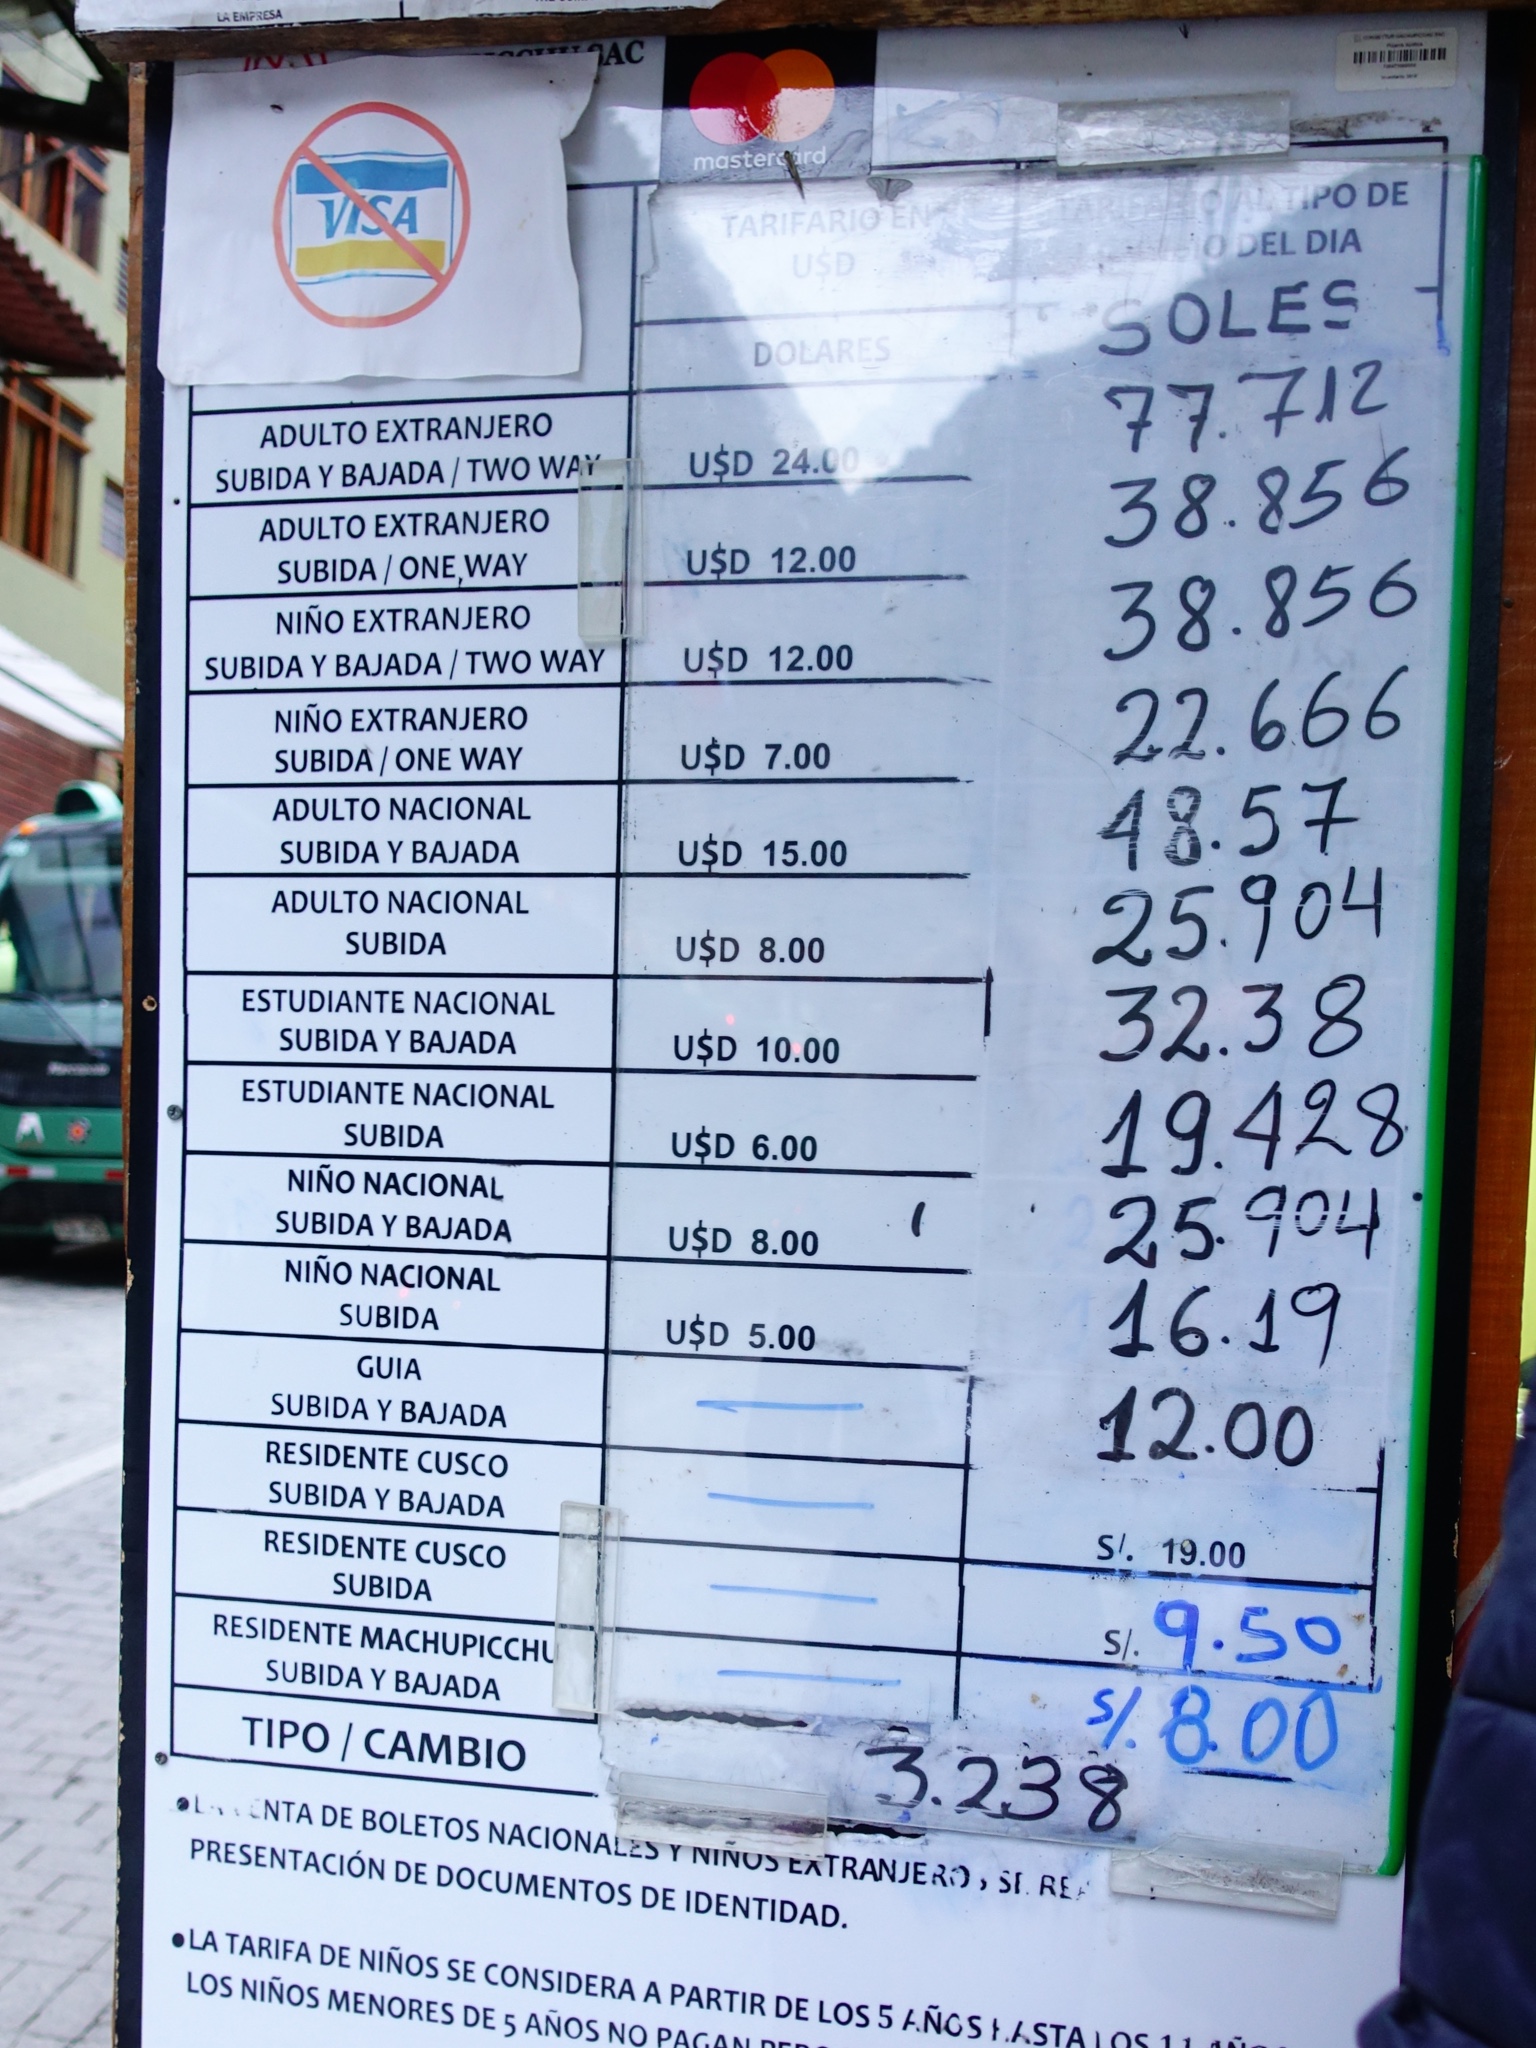 LA EMPRESA
SAC
VISA
mastercard
TARIFARIO EN
U$D
AL TIPO DE
DEL DIA
DOLARES
SOLES
ADULTO EXTRANJERO
SUBIDA Y BAJADA / TWO WAY
U$D 24.00
77.712
ADULTO EXTRANJERO
SUBIDA / ONE WAY
U$D 12.00
38.856
NIÑO EXTRANJERO
SUBIDA Y BAJADA / TWO WAY
U$D 12.00
38.856
NIÑO EXTRANJERO
SUBIDA / ONE WAY
U$D 7.00
22.666
ADULTO NACIONAL
SUBIDA Y BAJADA
U$D 15.00
48.57
ADULTO NACIONAL
SUBIDA
U$D 8.00
25.904
ESTUDIANTE NACIONAL
SUBIDA Y BAJADA
U$D 10.00
32.38
ESTUDIANTE NACIONAL
SUBIDA
U$D 6.00
19.428
NIÑO NACIONAL
SUBIDA Y BAJADA
U$D 8.00
25.904
NIÑO NACIONAL
SUBIDA
U$D 5.00
16.19
GUIA
SUBIDA Y BAJADA
12.00
RESIDENTE CUSCO
SUBIDA Y BAJADA
S/. 19.00
RESIDENTE CUSCO
SUBIDA
S/. 9.50
RESIDENTE MACHUPICCHU
SUBIDA Y BAJADA
S/. 8.00
TIPO / CAMBIO
3.238
DE BOLETOS NACIONALES Y NIÑOS EXTRANJERO
PRESENTACIÓN DE DOCUMENTOS DE IDENTIDAD.
•LA TARIFA DE NIÑOS SE CONSIDERA A PARTIR DE LOS 5 AÑOS HASTA LOS 11
LOS NIÑOS MENORES DE 5 AÑOS NO PAGAN